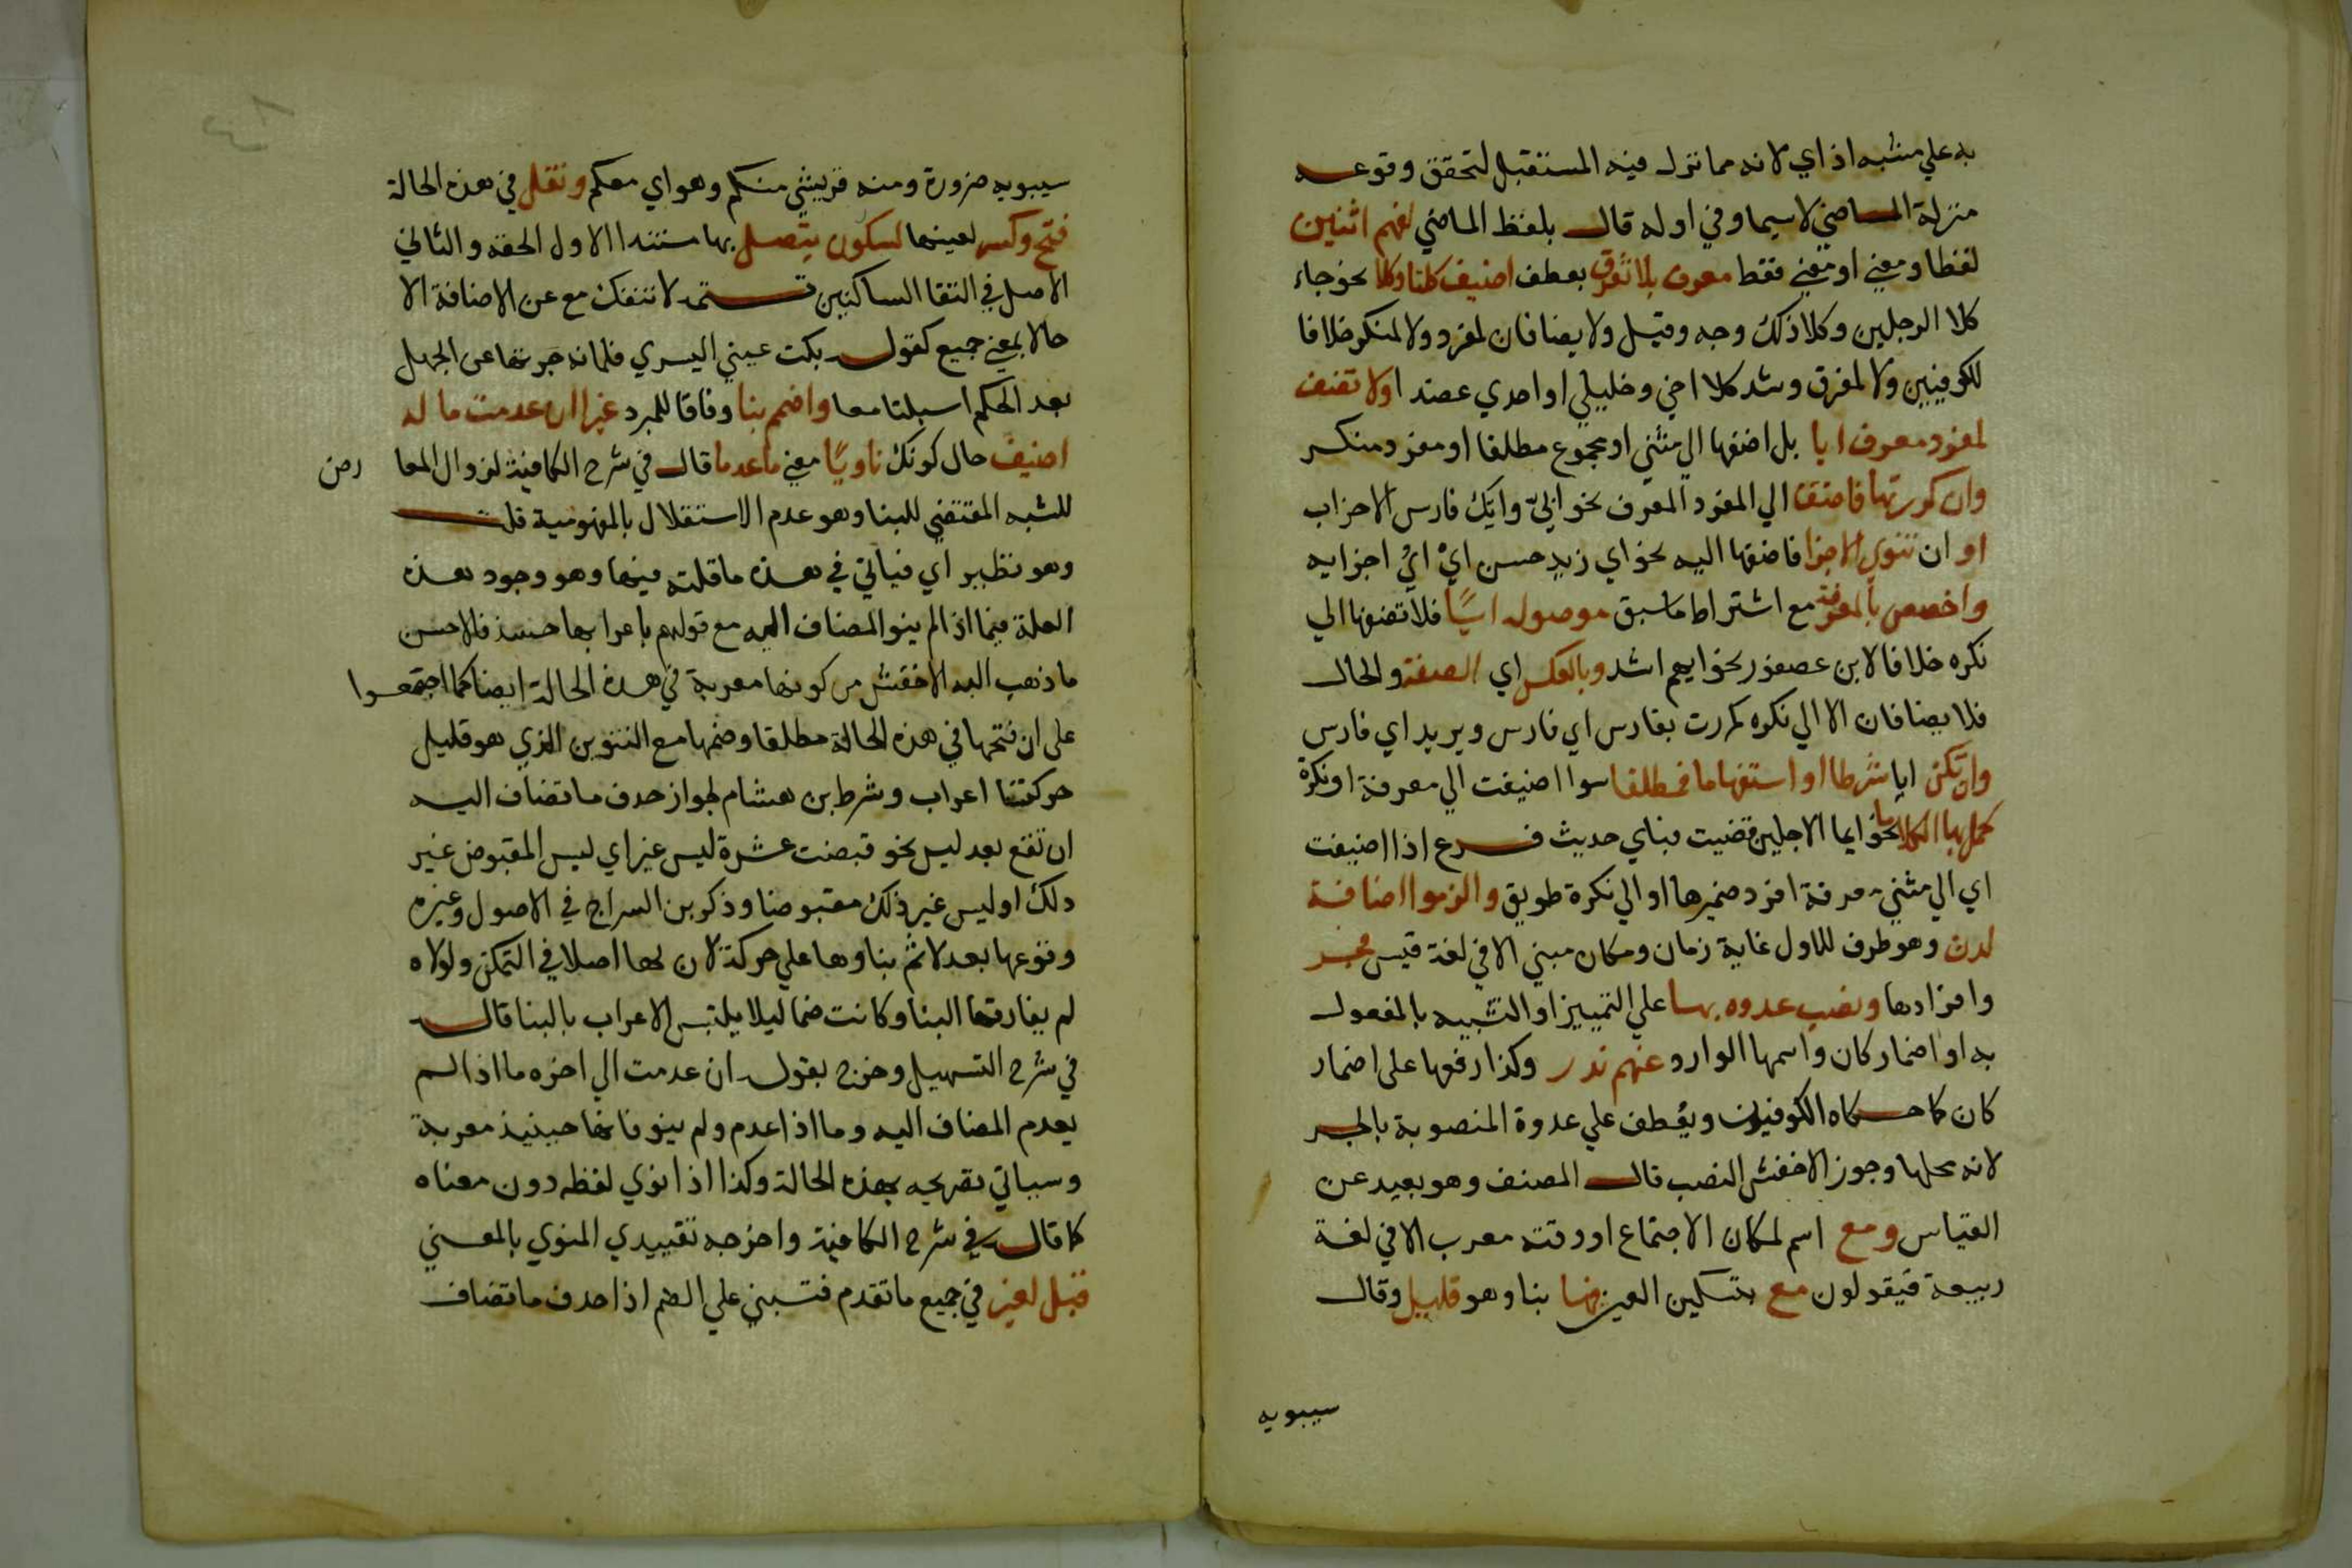 به علي مشبه اذ اي لانه مما نزل فيه المستقبل لتحقق وقوعه
منزلة الماضي لاسيما وفي اوله قال بلفظ الماضي لفهم اثنين
لفظا ومعني او معني فقط معرف بلا تفرق بعطف اضيف كلتا وكلا نحو جاء
كلا الرجلين وكلا ذلك وجه وقبل ولا يضافان لمفرد ولا لمنكر خلافا
للكوفيين ولا لمفرق وشد كلا اخي وخليلي واحدي عضدا ولا تضف
لمفرد معرف ايا بل اضفها الي مثني او مجموع مطلقا او مفرد منكر
وان كررتها فاضفتا الي المفرد المعرف نحو ايي وايك فارس الاحزاب
او ان تنوي الاجزا فاضفها اليه نحو اي زيد حسن اي اي اجزايه
واخصص بالمعرفة مع اشتراط ماسبق موصولة ايا فلا تضفها الي
نكره خلافا لابن عصفور نحو ايهم اشد وبالعكس اي الصفة والحال
فلا يضافان الا الي نكره كمررت بفارس اي فارس وبزيد اي فارس
وان تكن ايا شرطا او استفهاما فمطلقا سوا اضيفت الي معرفة او نكرة
كمل بها الكلاما نحو ايما الاجلين قضيت فباي حديث فرع اذا اضيفت
اي الي مثني معرفة افرد ضميرها او الي نكرة طوبق والزموا اضافة
لدن وهو ظرف للاول غاية زمان ومكان مبني الا في لغة قيس فجر
وافرادها ونصب غدوه بها علي التمييز او التشبيه بالمفعول
به او اضمار كان واسمها الوارد عنهم ندر وكذا رفعها على اضمار
كان كما حكاه الكوفيون ويعطف علي غدوة المنصوبة بالجر
لانه محلها وجوز الاخفش النصب قال المصنف وهو بعيد عن
القياس ومع اسم لمكان الاجتماع او وقته معرب الا في لغة
ربيعة فيقولون مع بتسكين العين فيها بنا وهو قليل وقال
سيبويه
سيبويه ضرورة ومنه فريشي منكم وهواي معكم ونقل في هذه الحالة
فتح وكسر لعينها لسكون يتصل بها مستندا الاول الخفة والثاني
الاصل في التقا الساكنين تتمه لا تنفك مع عن الاضافة الا
حالا بمعني جميع كقوله بكت عيني اليسري فلما زجرتها عن الجهل
بعد الحكم اسبلتا معا واضمم بنا وفاقا للمبرد غيرا ان عدمت ما له
اضيف حال كونك ناويا معني ما عدما قال في شرح الكافية لزوال المعا رض
للشبه المقتضي للبنا وهو عدم الاستقلال بالمفهومية قلت
وهو نظير اي فياتي في هذه ما قلته فيها وهو وجود هذه
العلة فيما اذا لم ينو المضاف اليه مع قولهم باعرابها حينئذ فالاحسن
ما ذهب اليه الاخفش من كونها معربة في هذه الحالة ايضا كما اجتمعوا
على ان فتحها في هذه الحالة مطلقا وضمها مع التنوين الذي هو قليل
حركتا اعراب وشرط بن هشام لجواز حدف ما تضاف اليه
ان تقع بعد ليس نحو قبضت عشرة ليس غير اي ليس المقبوض غير
دلك او ليس غير ذلك مقبوضا وذكر بن السراج في الاصول وغيره
وقوعها بعد لا ثم بناوها علي حركة لان لها اصلا في التمكن ولولاه
لم يفارقها البنا وكانت ضما ليلا يلتبس الاعراب بالبنا قال
في شرح التسهيل وخرج بقوله ان عدمت الي اخره ما اذا لم
يعدم المضاف اليه وما اذا عدم ولم ينو فانها حينيذ معربة
وسياتي تصريحه بهذه الحالة وكذا اذا نوي لفظه دون معناه
كما قال في شرح الكافية واخرجه تقييدي المنوي بالمعني
قبل لغير في جميع ما تقدم فتبني علي الضم اذا حدف ما تضاف